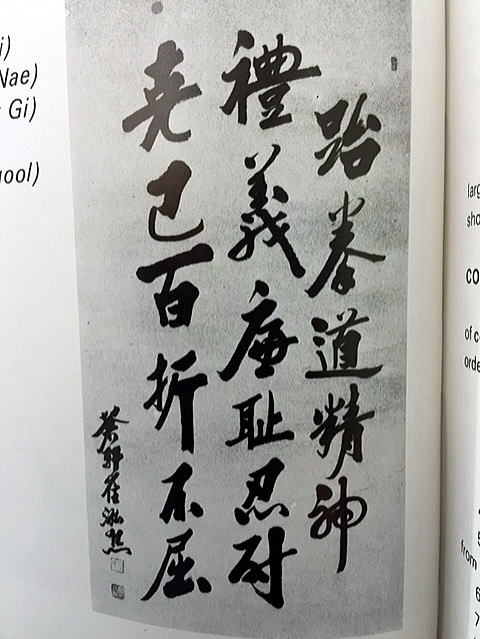 i)
Nae)
Gi)
ool)
跆拳道精神
禮義廉耻忍耐
克己百折不屈
癸卯崔泓熙
larg
sho
CO
of c
orde
from